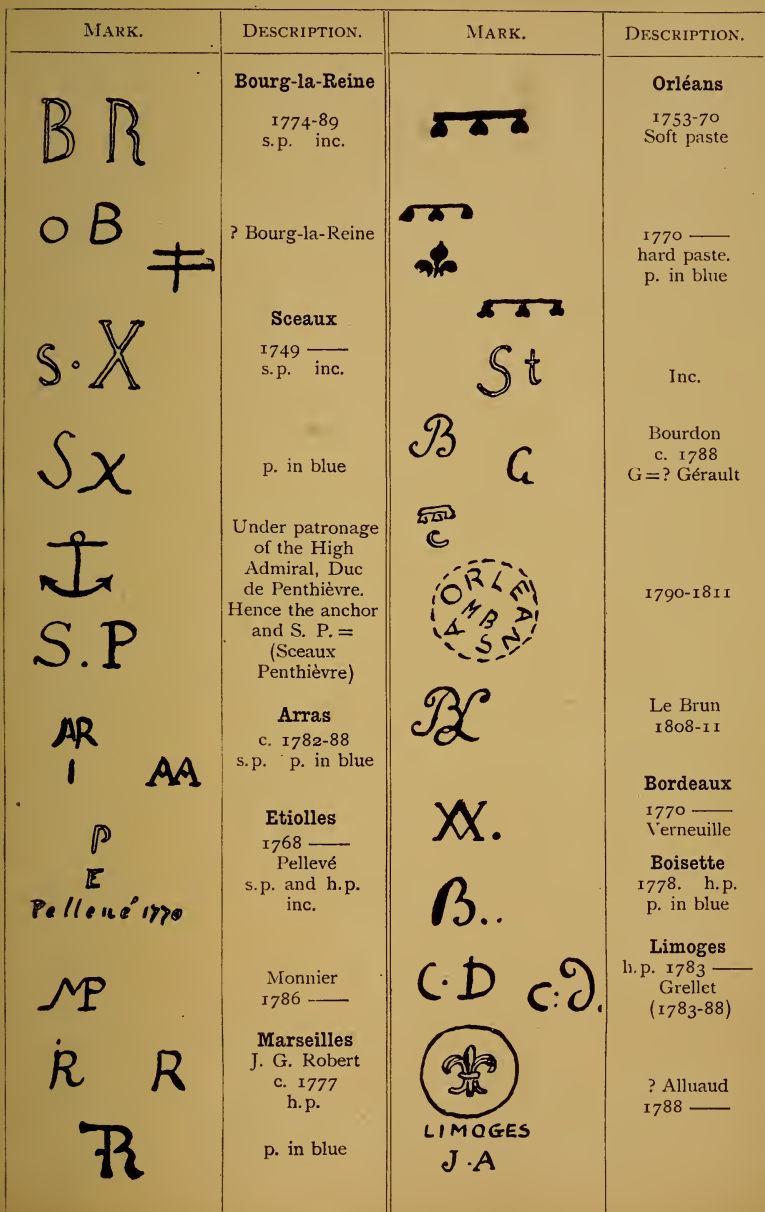 MARK. DESCRIPTION. MARK. DESCRIPTION.
Bourg-la-Reine
B R
1774-89
s.p. inc.
O B
? Bourg-la-Reine
Sceaux
S·X
1749 ——
s.p. inc.
SX
p. in blue
Under patronage
of the High
Admiral, Duc
de Penthièvre.
Hence the anchor
and S. P. =
(Sceaux
Penthièvre)
S.P
Arras
AR
I
AA
c. 1782-88
s.p. p. in blue
Etiolles
P
E
Pellevé 1770
1768 ——
Pellevé
s.p. and h.p.
inc.
MP
Monnier
1786 ——
Marseilles
R R
J. G. Robert
c. 1777
h.p.
R
p. in blue
Orléans
1753-70
Soft paste
1770 ——
hard paste.
p. in blue
St
Inc.
B G
Bourdon
c. 1788
G=? Gérault
C
A ORLEANS
MB
1790-1811
BL
Le Brun
1808-11
Bordeaux
1770 ——
Verneuille
Boisette
B..
1778. h.p.
p. in blue
Limoges
C·D C:D.
h.p. 1783 ——
Grellet
(1783-88)
LIMOGES
J·A
? Alluaud
1788 ——